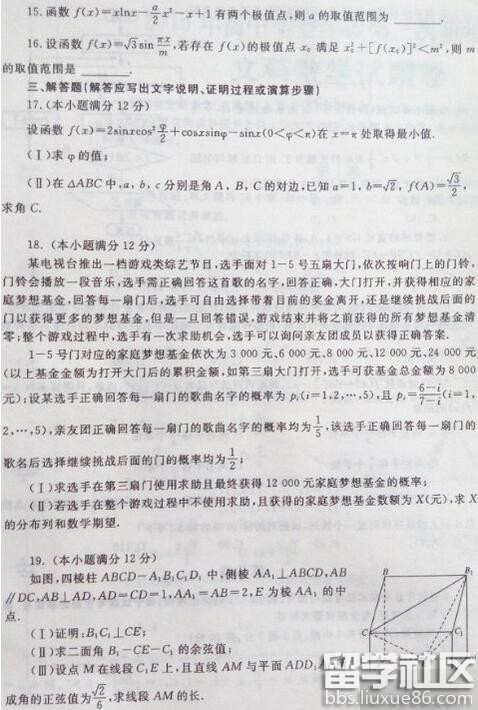 15. 函数 f(x)=xlnx-a/2 x²-x+1 有两个极值点,则 a 的取值范围为 ______.
16. 设函数 f(x)=√3 sin πx/m,若存在 f(x)的极值点 x₀ 满足 x₀²+[f(x₀)]²<m²,则 m
的取值范围是 ______.
三、解答题(解答应写出文字说明、证明过程或演算步骤)
17. (本小题满分 12 分)
设函数 f(x)=2sinxcos² φ/2+cosxsinφ-sinx(0<φ<π)在 x=π 处取得最小值.
(Ⅰ)求 φ 的值;
(Ⅱ)在 △ABC 中,a,b,c 分别是角 A,B,C 的对边,已知 a=1,b=√2,f(A)=√3/2,
求角 C.
18. (本小题满分 12 分)
某电视台推出一档游戏类综艺节目,选手面对 1-5 号五扇大门,依次按响门上的门铃,
门铃会播放一段音乐,选手需正确回答这首歌的名字,回答正确,大门打开,并获得相应的家
庭梦想基金,回答每一扇门后,选手可自由选择带着目前的奖金离开,还是继续挑战后面的
门以获得更多的梦想基金,但是一旦回答错误,游戏结束并将之前获得的所有梦想基金清
零;整个游戏过程中,选手有一次求助机会,选手可以询问亲友团成员以获得正确答案.
1-5 号门对应的家庭梦想基金依次为 3 000 元、6 000 元、8 000 元、12 000 元、24 000 元
(以上基金金额为打开大门后的累积金额,如第三扇大门打开,选手可获基金总金额为 8 000
元);设某选手正确回答每一扇门的歌曲名字的概率为 pᵢ(i=1,2,…,5),且 pᵢ=6-i/7-i(i=1,
2,…,5),亲友团正确回答每一扇门的歌曲名字的概率均为 1/5,该选手正确回答每一扇门的
歌名后选择继续挑战后面的门的概率均为 1/2;
(Ⅰ)求选手在第三扇门使用求助且最终获得 12 000 元家庭梦想基金的概率;
(Ⅱ)若选手在整个游戏过程中不使用求助,且获得的家庭梦想基金数额为 X(元),求 X
的分布列和数学期望.
19. (本小题满分 12 分)
如图,四棱柱 ABCD-A₁B₁C₁D₁ 中,侧棱 AA₁⊥ABCD,AB
∥DC,AB⊥AD,AD=CD=1,AA₁=AB=2,E 为棱 AA₁ 的中
点.
(Ⅰ)证明:B₁C₁⊥CE;
(Ⅱ)求二面角 B₁-CE-C₁ 的余弦值;
(Ⅲ)设点 M 在线段 C₁E 上,且直线 AM 与平面 ADD₁A₁
成角的正弦值为 √2/6,求线段 AM 的长.
B B₁
C C₁
留学社区
bbs.liuxue86.com